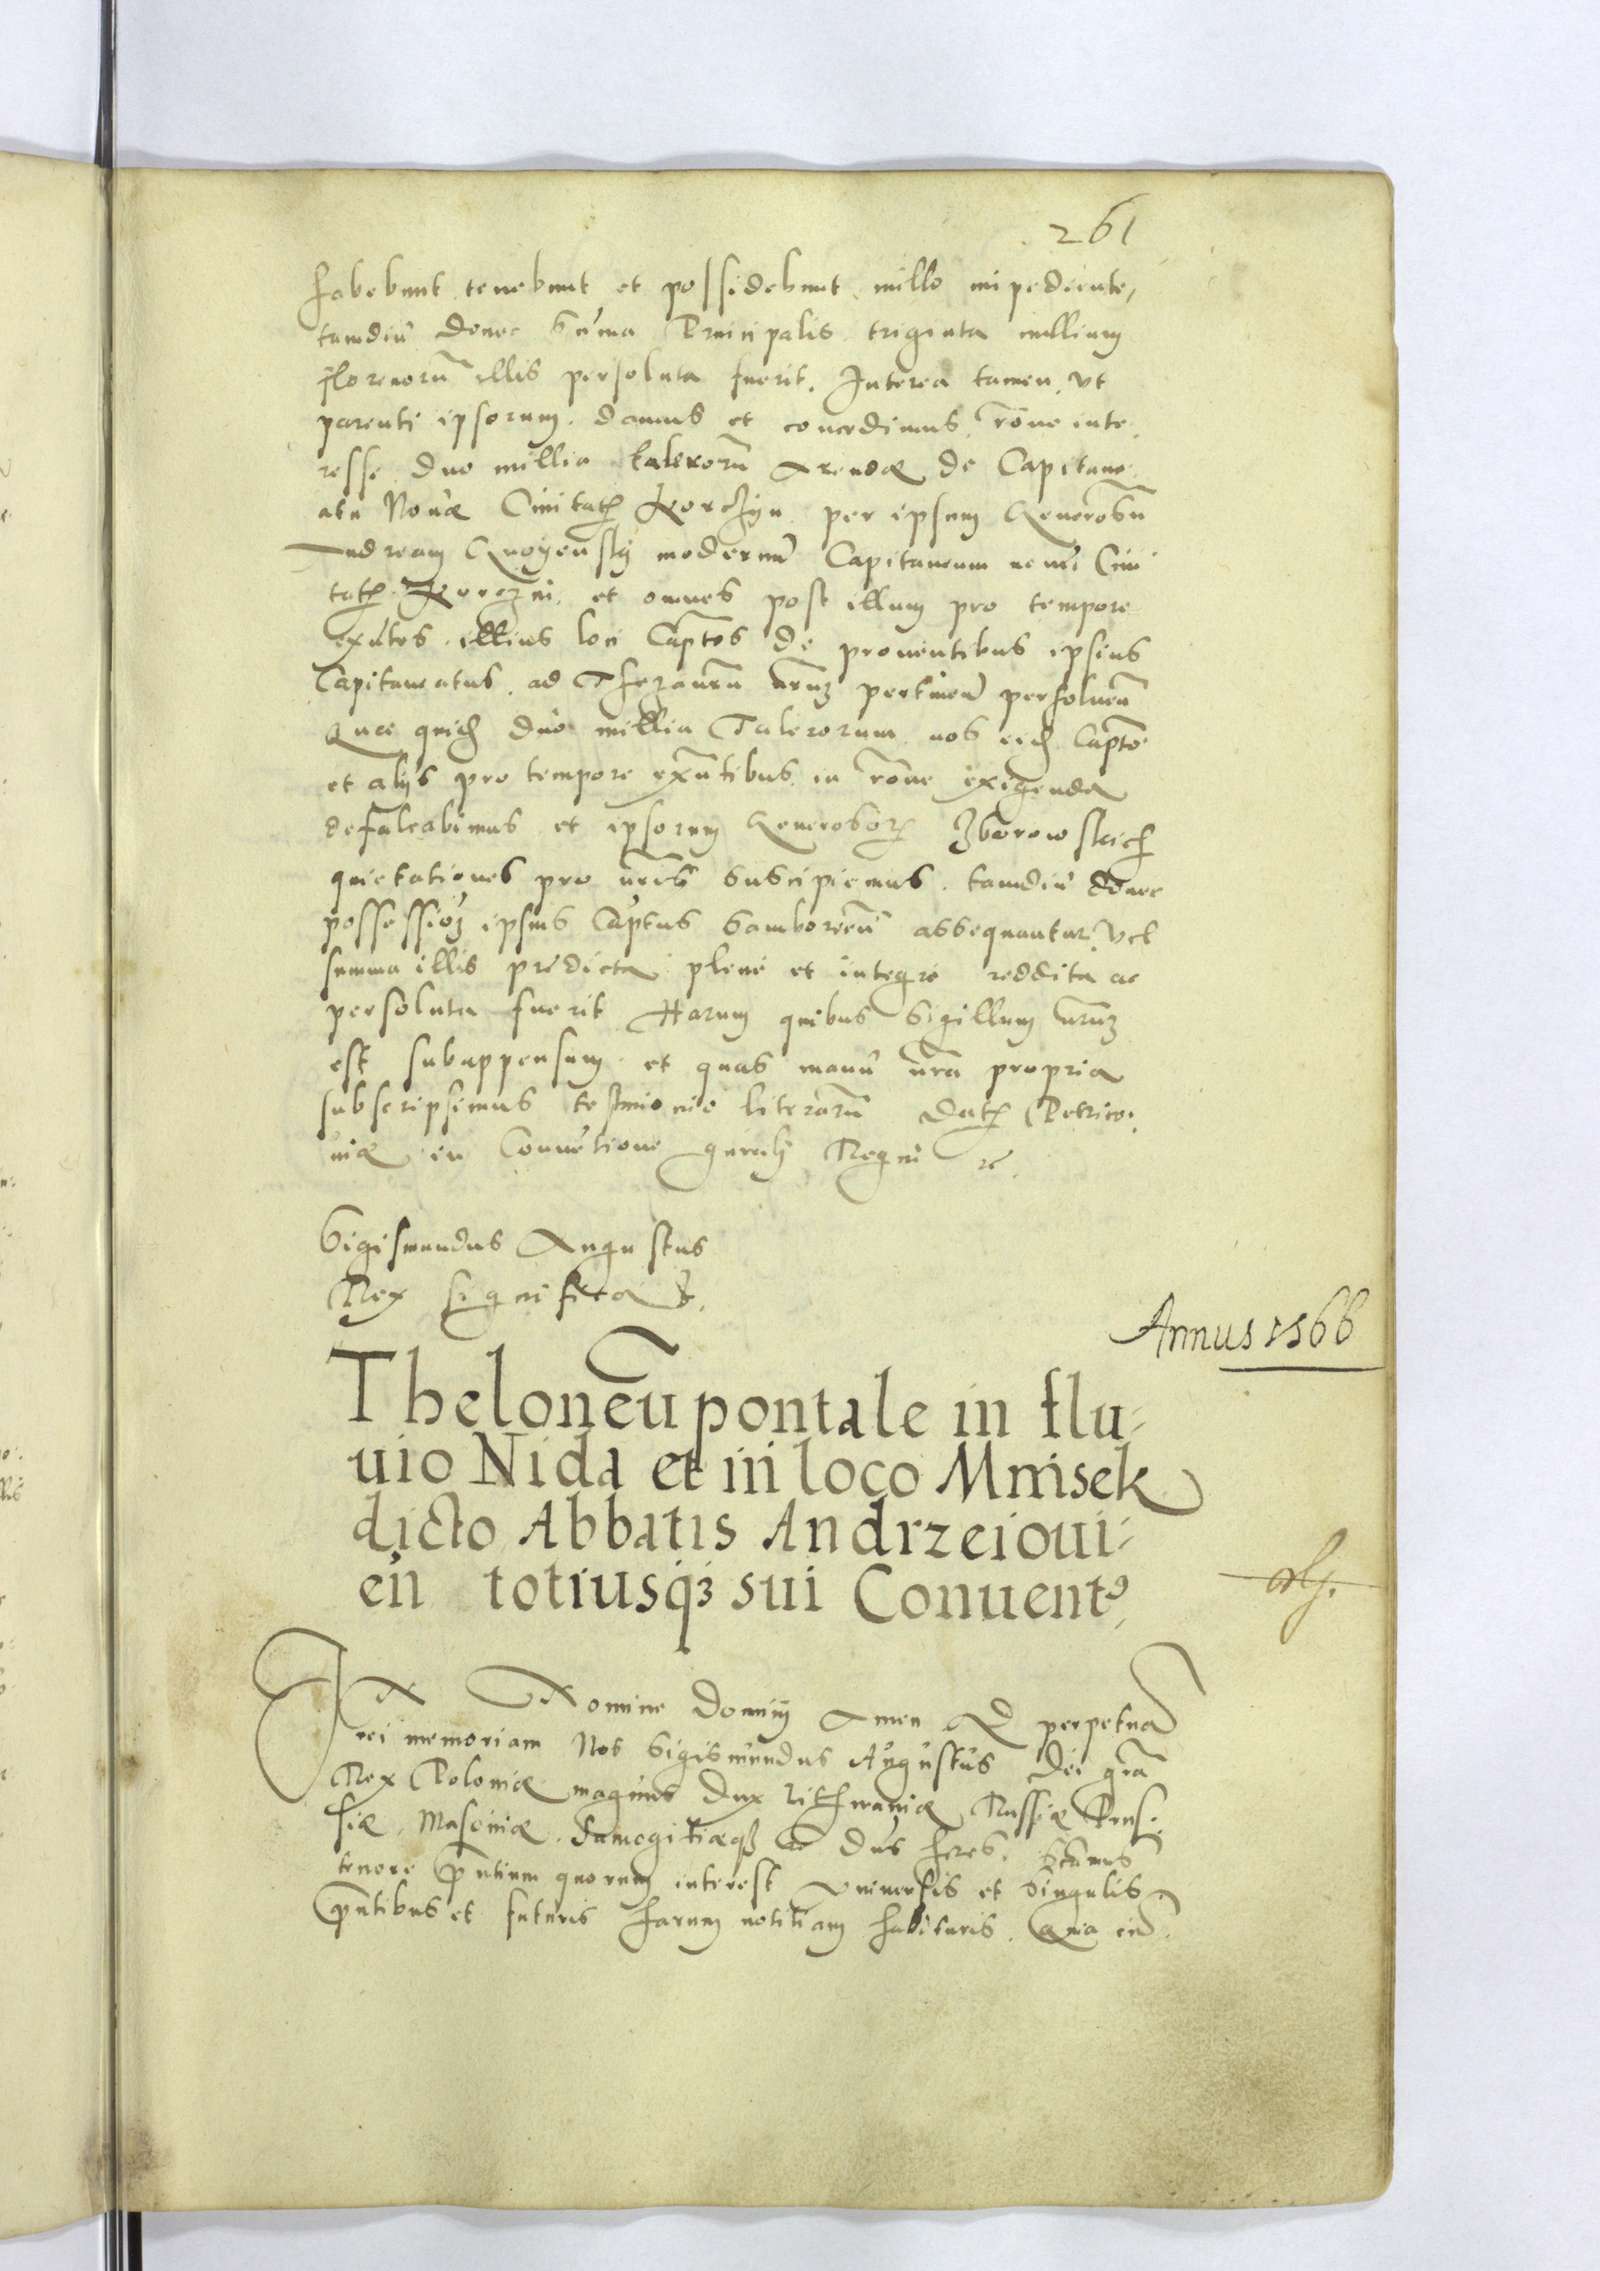 261
habebunt tenebunt et possidebunt nullo impediente,
tamdiu donec suma Principalis triginta millium
florenorū illis persoluta fuerit. Interea tamen, vt
parenti ipsorum, damus et concedimus, rōne inte,
resse duo millia talerorū Arendæ de Capitane,
atu Nouæ Ciuitatis Korczyn per ipsum Generosū
Andream modernū Capitaneum noui Ciui
tatis Korczin, et omnes post illum pro tempore
exn̄tes illius loci Captōs de prouentibus ipsius
Capitaneatus, ad Thezaurū nrūm pertineñ persoluen̄
Quæ quid duo millia Talerorum nos eid Captō
et alijs pro tempore exn̄tibus in rōne exigenda
defalcabimus et ipsorum Generosor Zborowskich
quietationes pro nris suscipiemus, tamdiu donec
possession ipsius Captūs Samborien̄ assequantur, vel
summa illis predicta plene et integre reddita ac
persoluta fuerit Harum quibus Sigillum nrūm
est subappensum et quas manu nrā propria
subscripsimus testimonio literarū Dat Petrico,
uiæ in Conuētione gnrāli Regni &c.
Sigismundus Augustus
Rex
Annus 1566
Theloneū pontale in flu-
uio Nida et in loco Mnisek
dicto Abbatis Andrzeioui-
eñ totiusq; sui Conuent9
In Nomine Domini Amen Ad perpetuā
rei memoriam Nos Sigismundus Augustus Dei grā
Rex Poloniæ magnus Dux Lithuaniæ Russiæ Prus,
siæ, Masouiæ, Samogitiæq; &c Dn̄s heres, Sc̄amus
tenore pn̄tium quorum interest vniuersis et singulis
pn̄tibus et futuris harum notitiam habituris, Quia cū